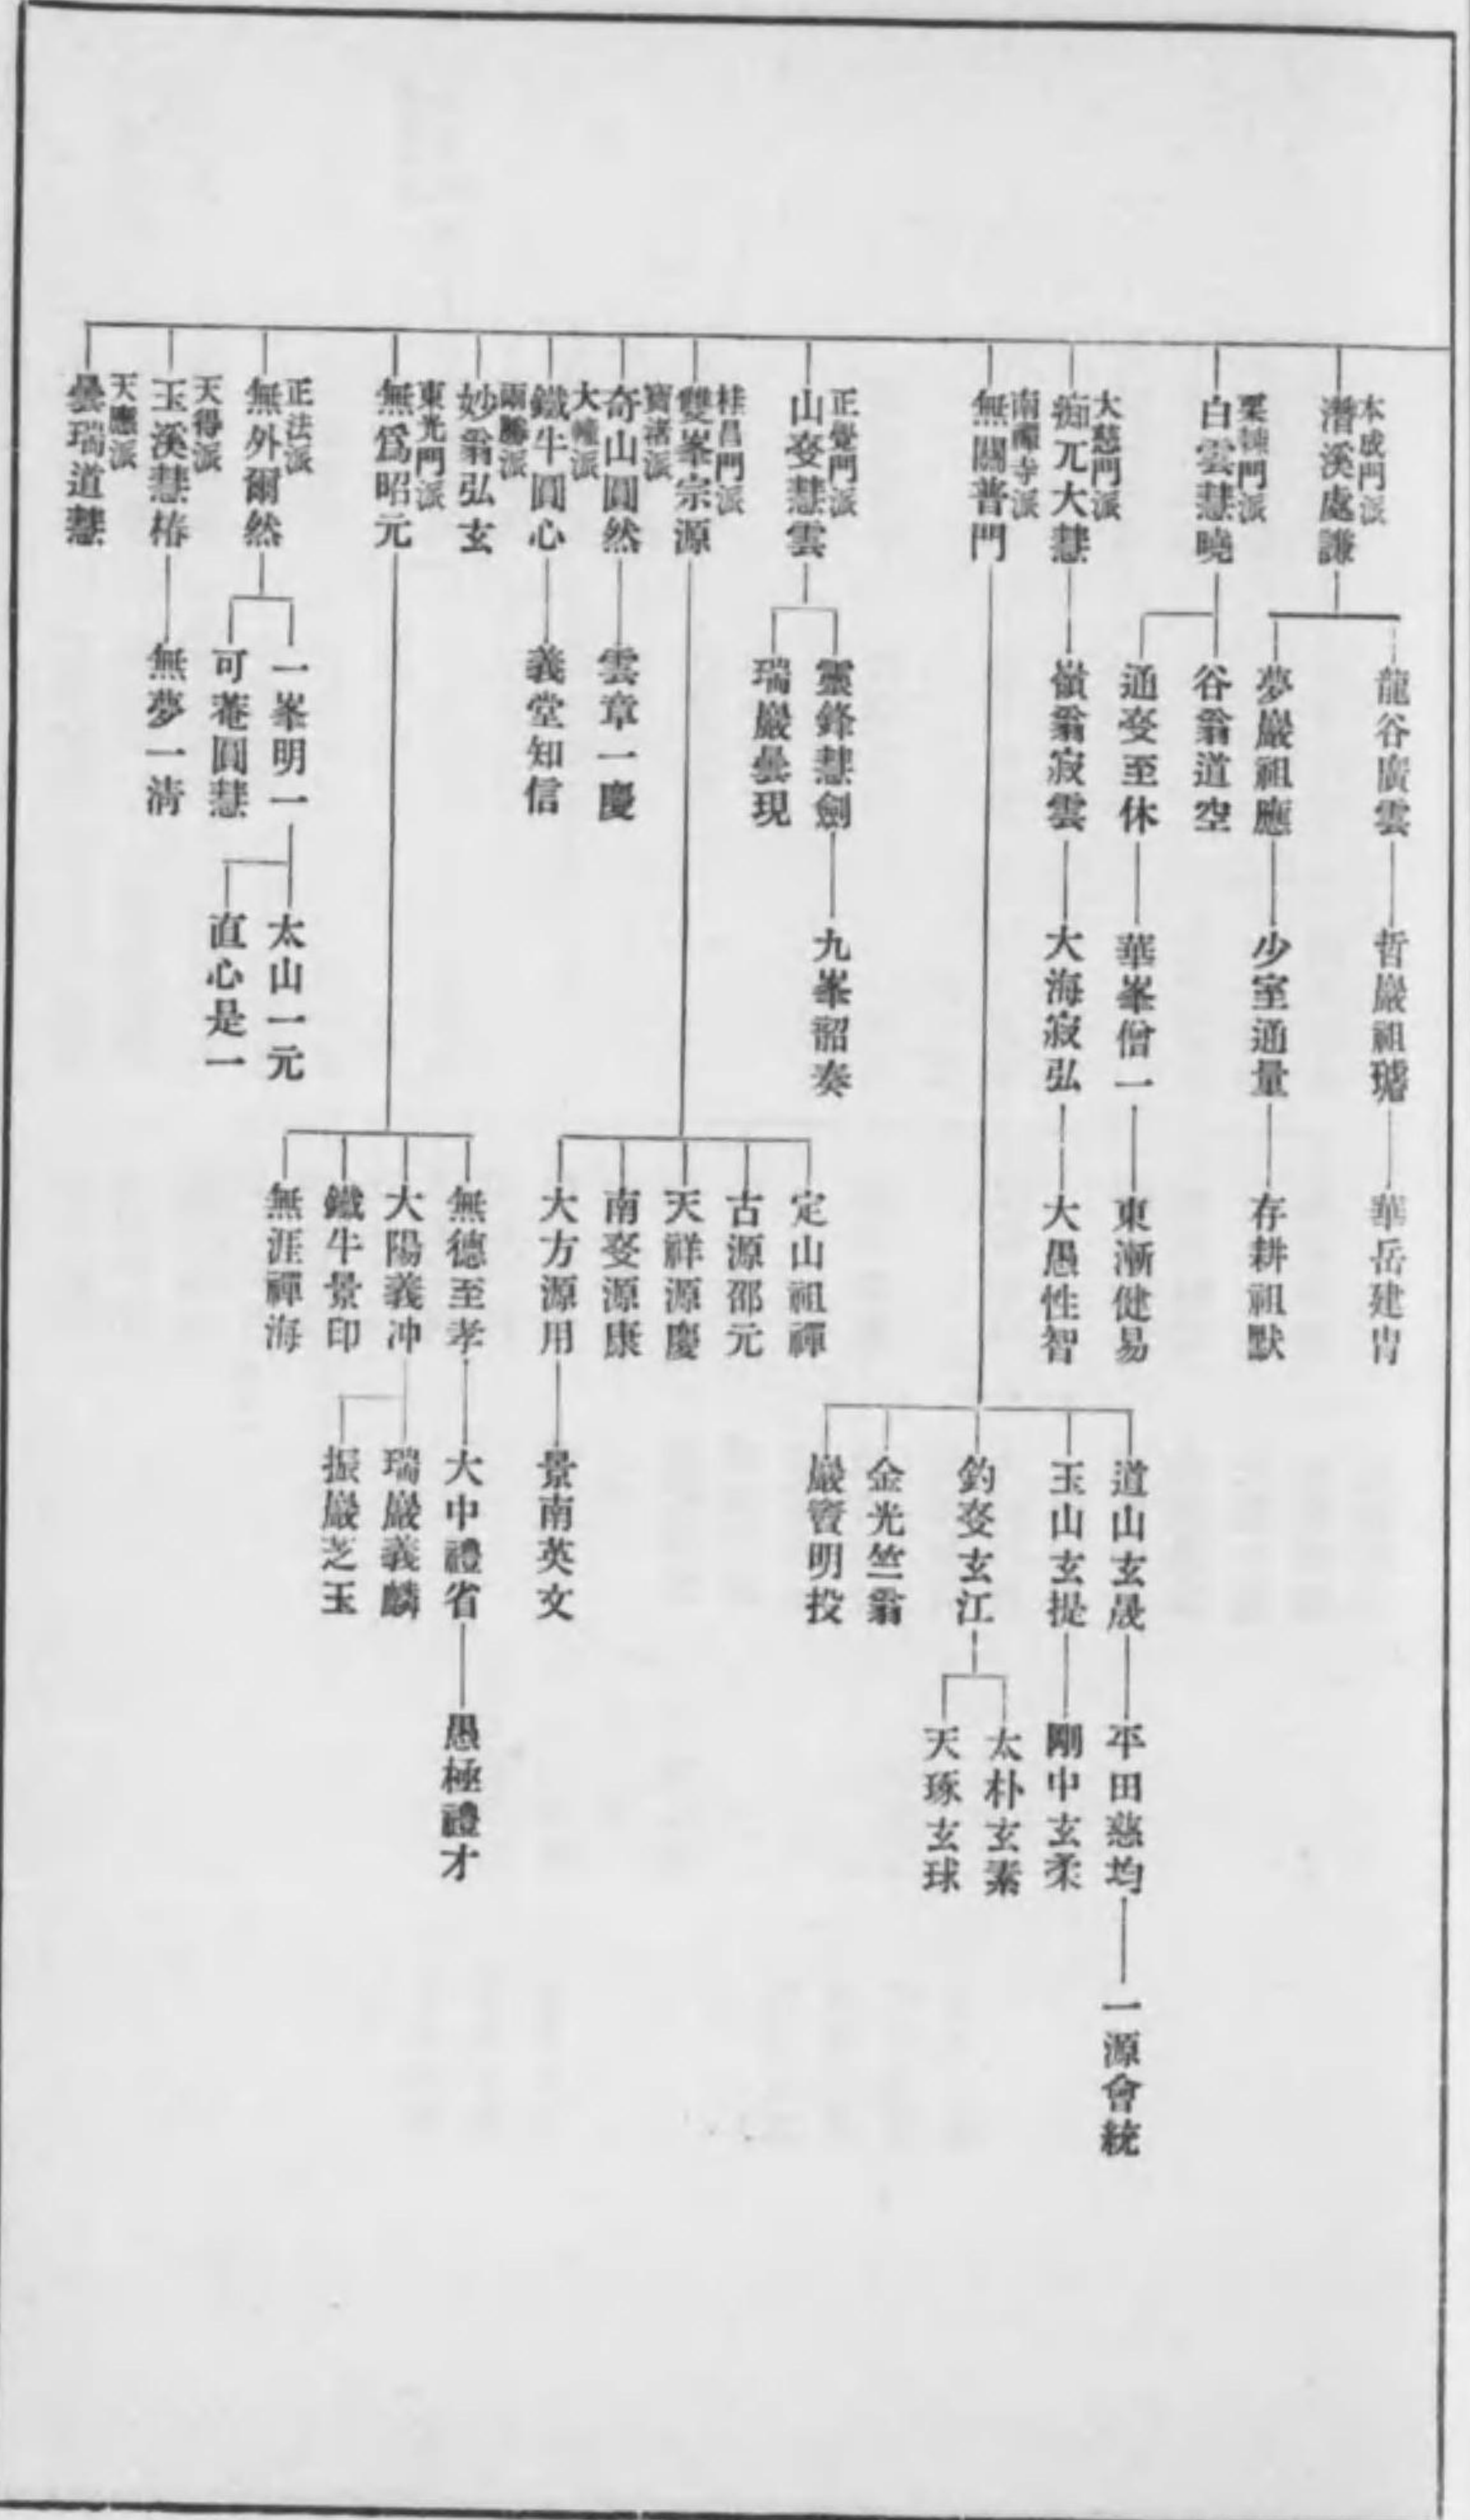 本成門派
潛溪處謙
龍谷廣雲
哲巖祖璿
華岳建冑
夢巖祖應
少室通量
存耕祖默
栗棘門派
白雲慧曉
谷翁道空
通叟至休
華峯僧一
東漸健易
大慈門派
痴兀大慧
嶺翁寂雲
大海寂弘
大愚性智
南禪寺派
無關普門
道山玄晟
平田慈均
一源會統
玉山玄提
剛中玄柔
釣叟玄江
太朴玄素
天琢玄球
金光竺翁
巖竇明投
正覺門派
山叟慧雲
靈鋒慧劍
九峯韶奏
瑞巖曇現
桂昌門派
雙峯宗源
定山祖禪
古源邵元
天祥源慶
南叟源康
大方源用
景南英文
寶渚派
奇山圓然
雲章一慶
大幢派
鐵牛圓心
義堂知信
兩勝派
妙翁弘玄
東光門派
無爲昭元
無德至孝
大中禮省
愚極禮才
大陽義冲
瑞巖義麟
振巖芝玉
鐵牛景印
無涯禪海
正法派
無外爾然
一峯明一
太山一元
直心是一
可菴圓慧
天得派
玉溪慧椿
無夢一淸
天應派
曇瑞道慧